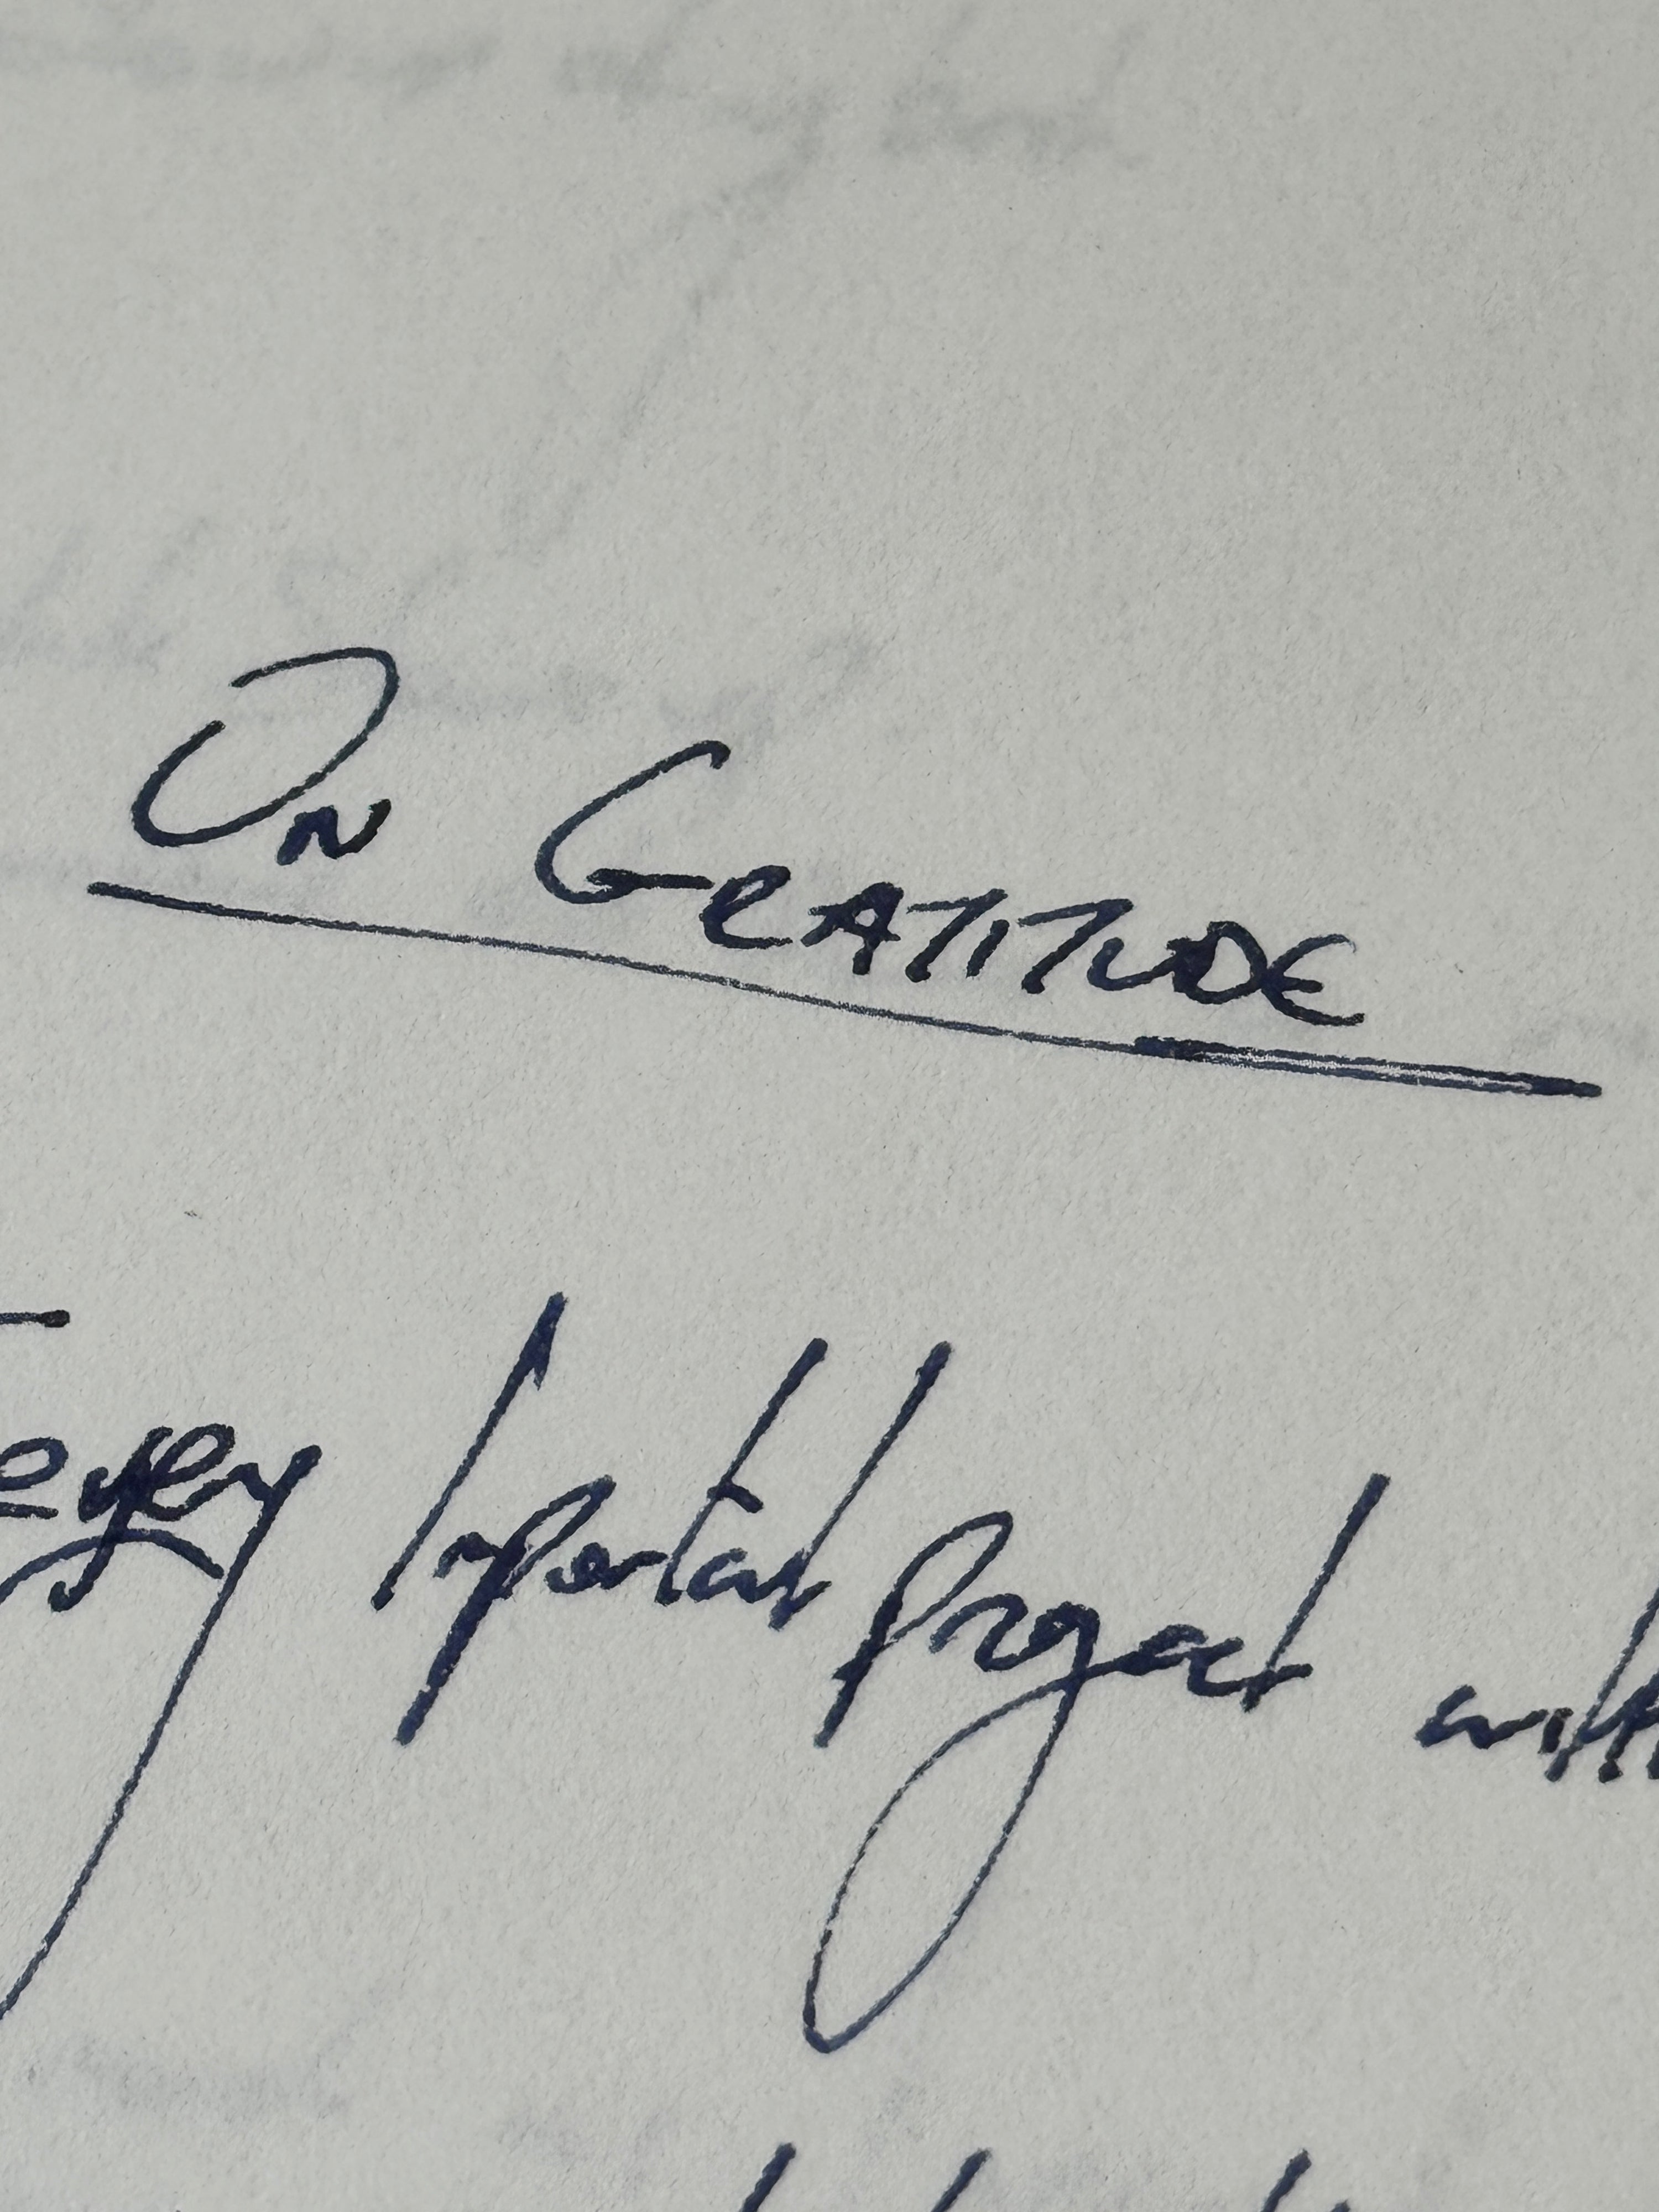 On GRATITUDE
every important project with